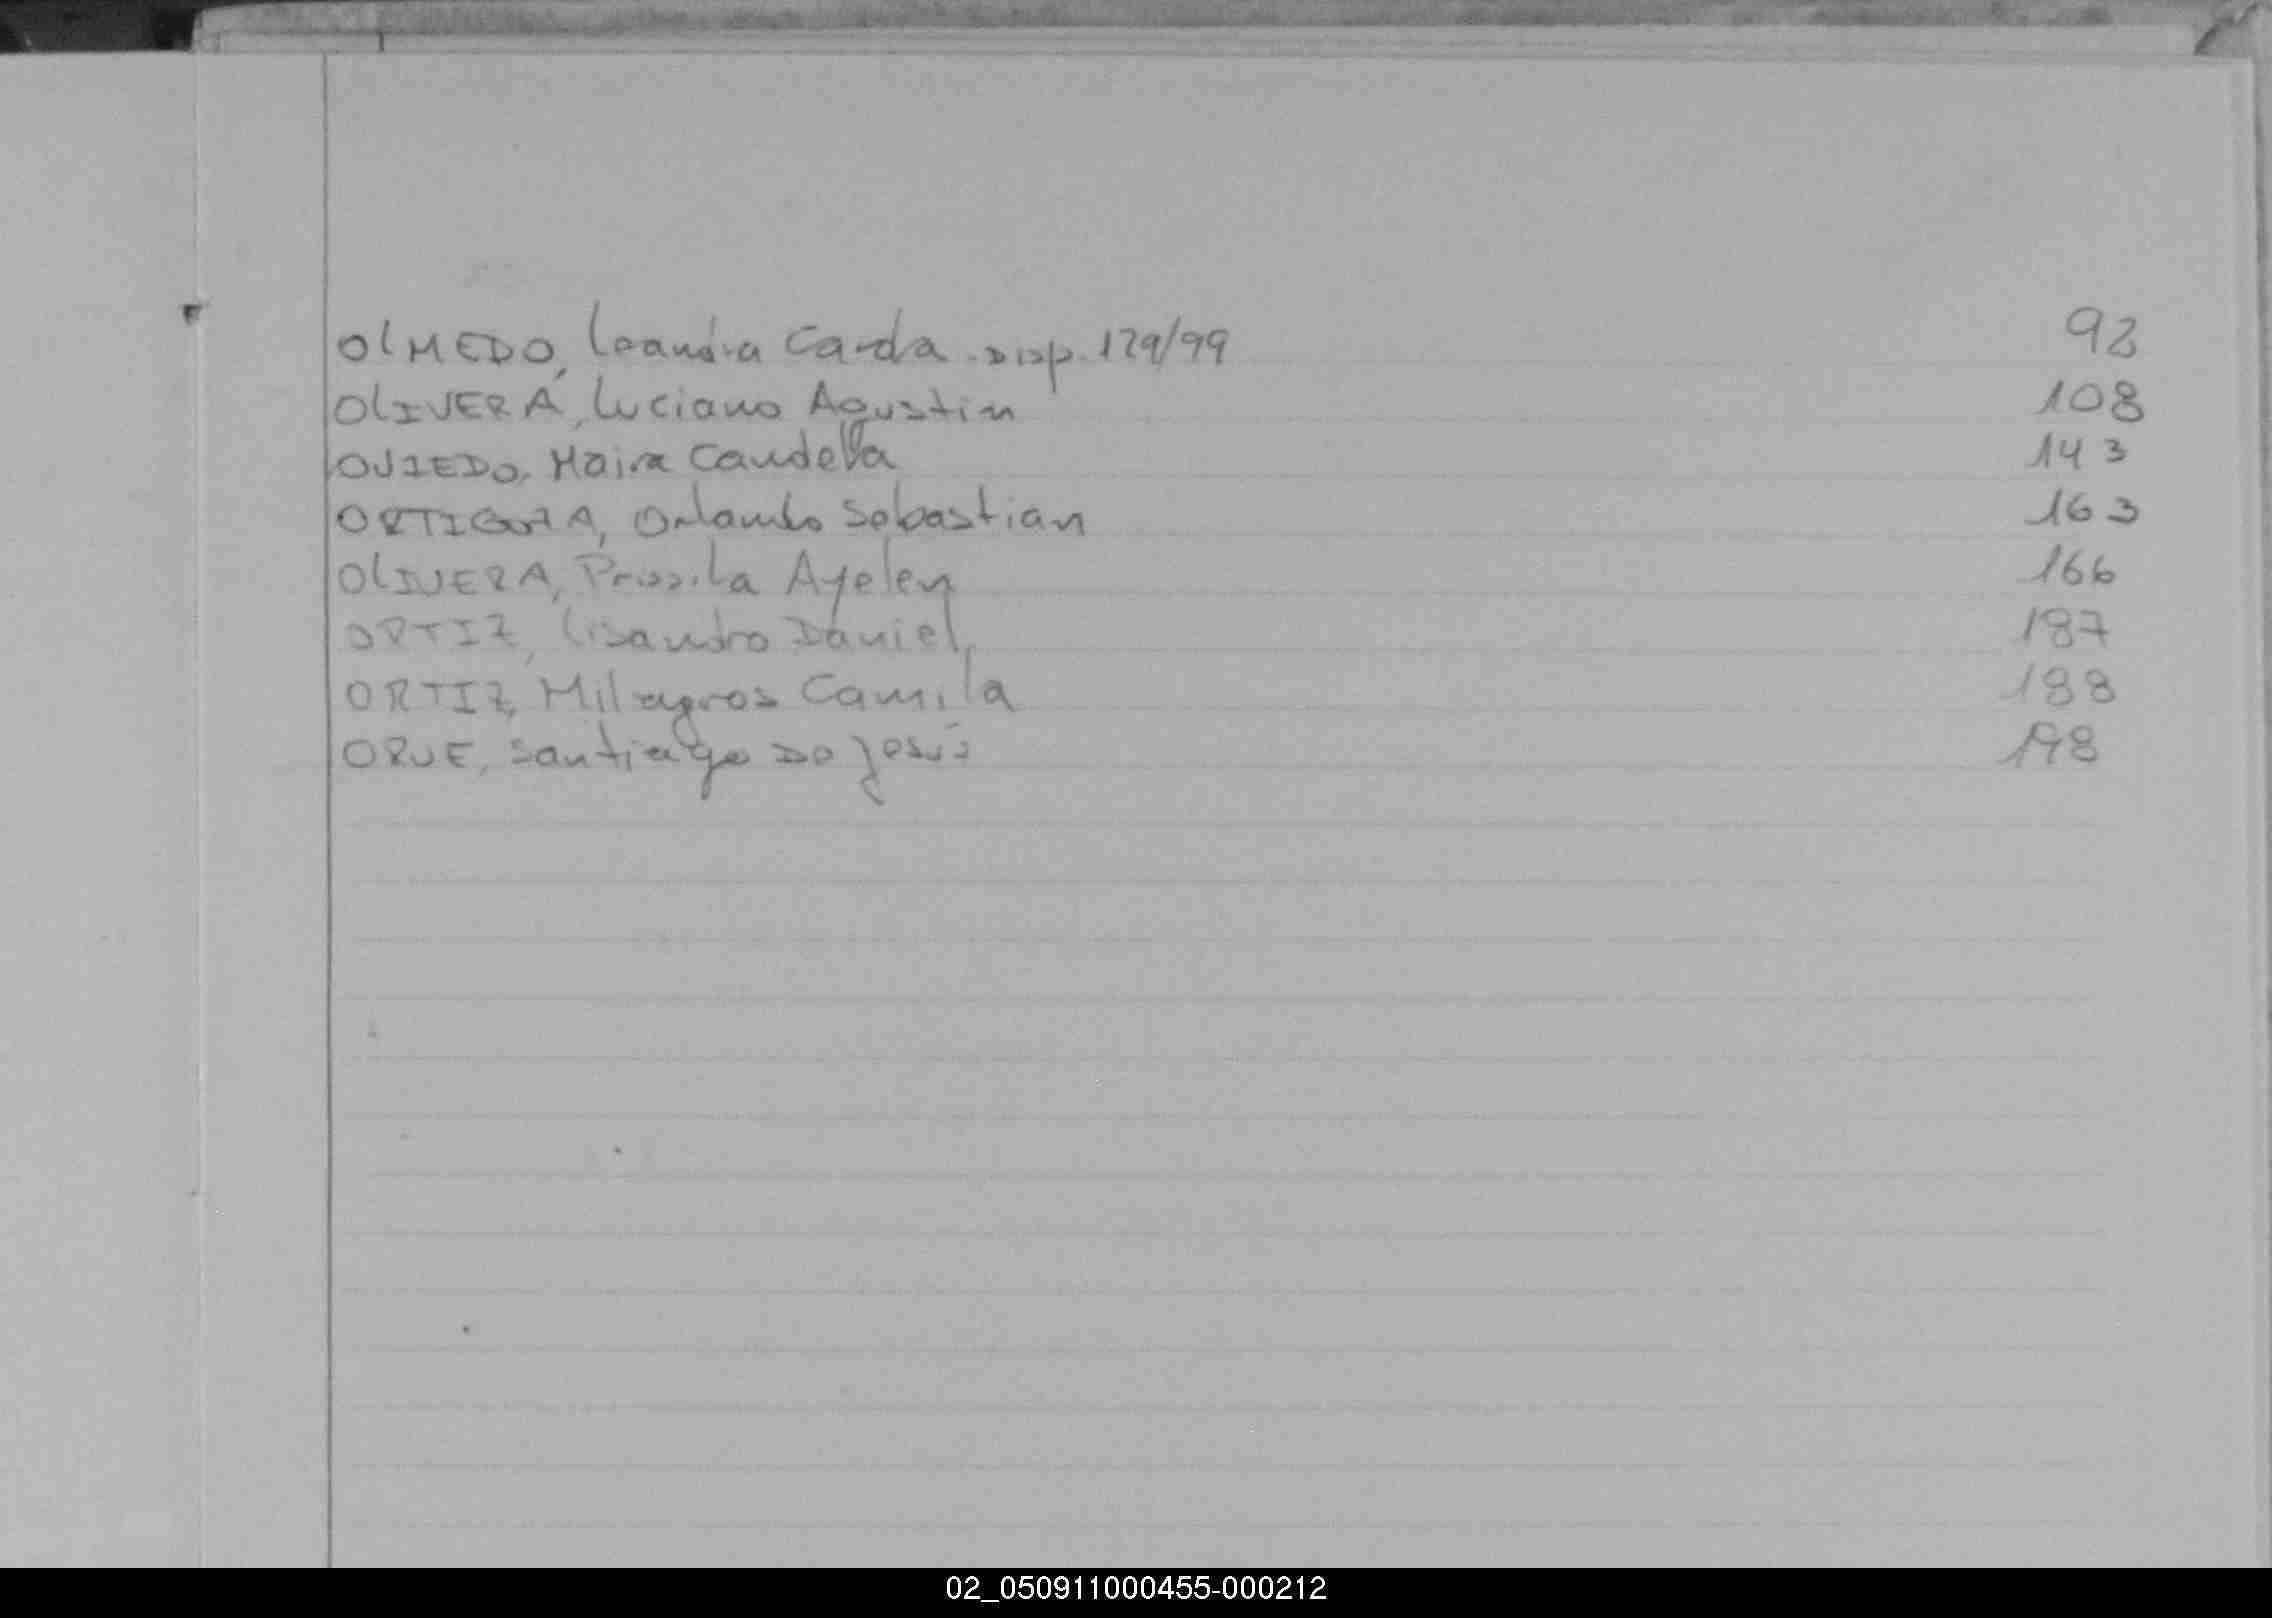 OLMEDO, Leandra Carla. Disp. 129/99 92
OLIVERA, Luciano Agustin 108
OVIEDO, Maira Candela 143
ORTIGOZA, Orlando Sebastian 163
OLIVERA, Prissila Ayelen 166
ORTIZ, Lisandro Daniel 187
ORTIZ, Milagros Camila 188
ORUE, Santiago De Jesús 198
02_050911000455-000212